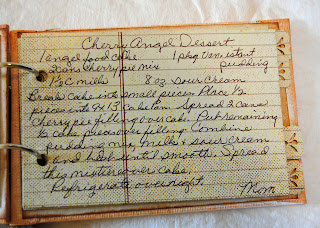 Cherry Angel Dessert
1 angel food cake 1 pkg Van. instant
2 cans cherry pie mix pudding
1½ C milk 8 oz sour cream
Break cake into small pieces. Place ½
pieces into 9x13 cake pan. Spread 2 cans
Cherry pie filling over cake. Put remaining
½ cake pieces over filling. Combine
pudding mix, milk & sour cream
and beat until smooth. Spread
this mixture over cake.
Refrigerate overnight.
Mom